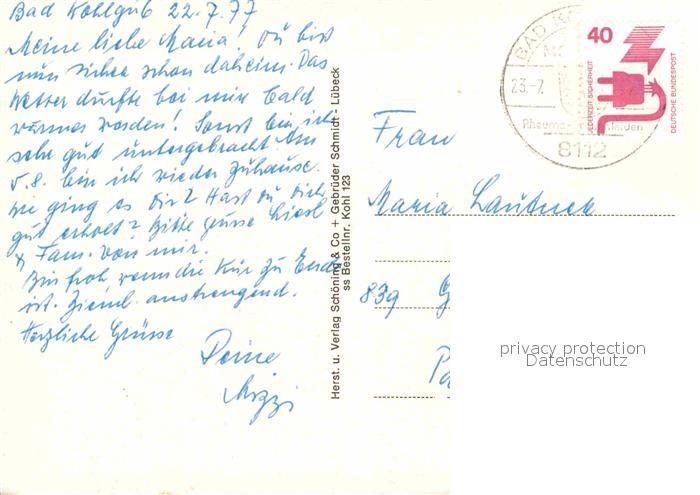 Bad Kohlgub 22.7.77
Meine liebe Maria! Du bist
nun sicher schon daheim. Das
Wetter dürfte bei mir bald
wärmer werden! Sonst bin ich
sehr gut untergebracht. Am
5.8. bin ich wieder zuhause.
Wie ging es Dir? Hast Du Dich
gut erholt? Bitte grüsse Liesl
& Fam. von mir.
Bin froh wenn die Kur zu Ende
ist. Zieml. anstrengend.
Herzliche Grüsse
Deine
Mizzi
Herst. u. Verlag Schöning & Co + Gebrüder Schmidt - Lübeck
ss Bestellnr. Kohl 123
BAD K
23.-7.
Rheuma
8112
40
JEDERZEIT SICHERHEIT
DEUTSCHE BUNDESPOST
Frau
Maria
839
privacy protection
Datenschutz